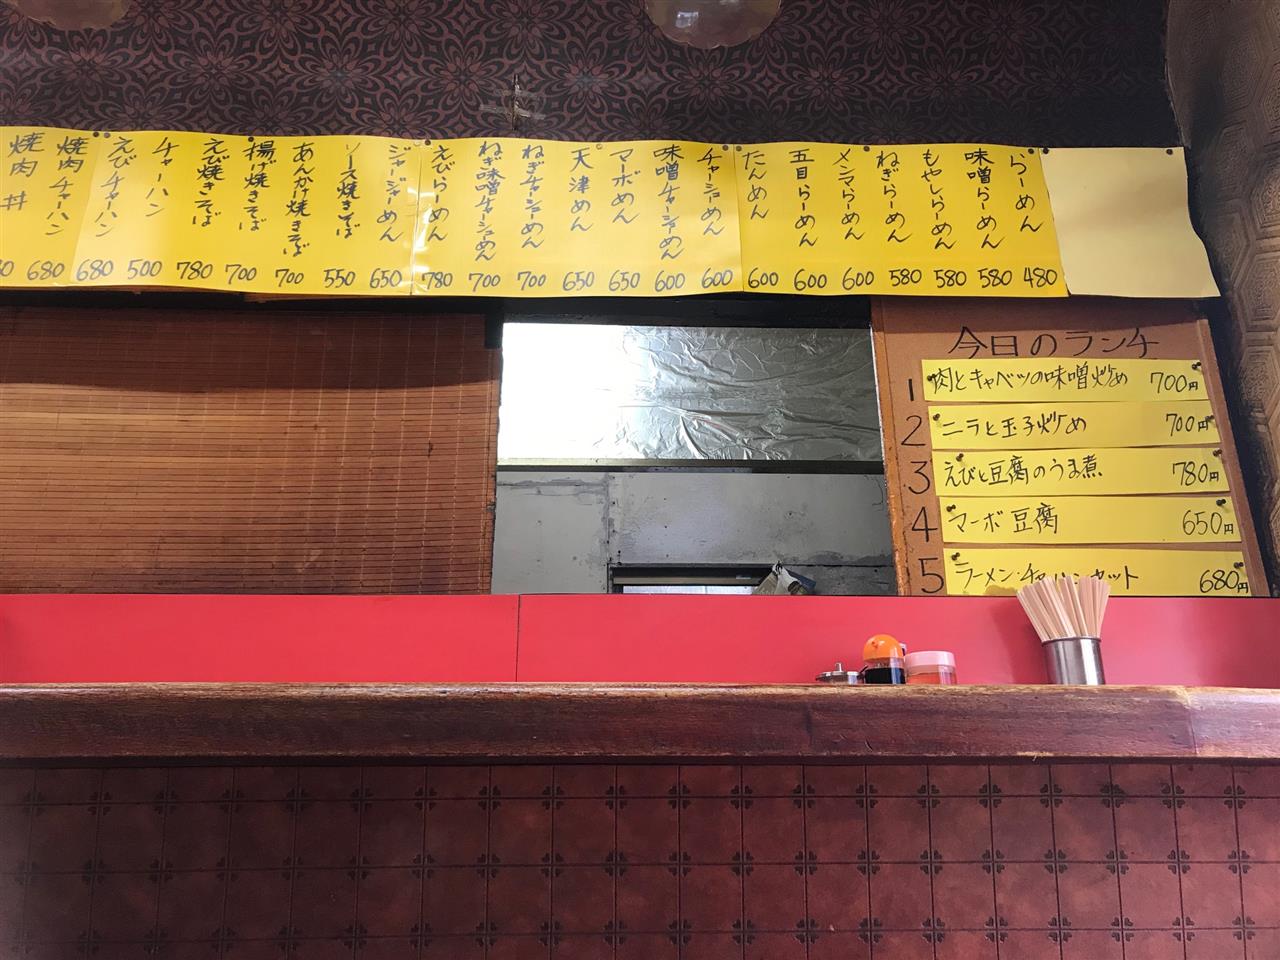 らーめん 480
味噌らーめん 580
もやしらーめん 580
ねぎらーめん 580
メンマらーめん 600
五目らーめん 600
たんめん 600
チャーシューめん 600
味噌チャーシューめん 600
マーボめん 650
天津めん 650
ねぎチャーシューめん 700
ねぎ味噌チャーシューめん 700
えびらーめん 780
ジャージャーめん 650
ソース焼きそば 550
あんかけ焼きそば 700
揚げ焼きそば 700
えび焼きそば 780
チャーハン 500
えびチャーハン 680
焼肉チャーハン 680
焼肉丼
今日のランチ
1 肉とキャベツの味噌炒め 700円
2 ニラと玉子炒め 700円
3 えびと豆腐のうま煮 780円
4 マーボ豆腐 650円
5 ラーメン・チャーハンセット 680円